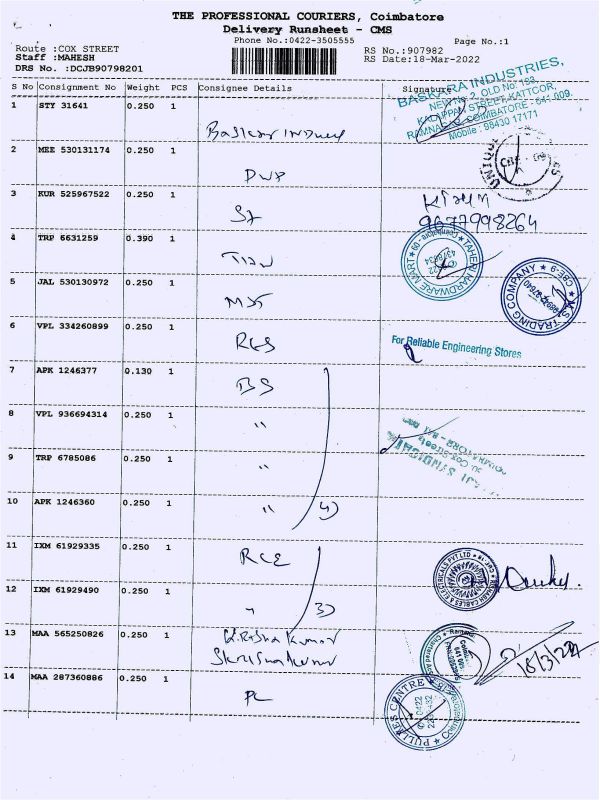 THE PROFESSIONAL COURIERS, Coimbatore
Delivery Runsheet - CMS
Phone No.:0422-3505555 Page No.:1
Route :COX STREET RS No.:907982
Staff :MAHESH RS Date:18-Mar-2022
DRS No. :DCJB90798201
S No Consignment No Weight PCS Consignee Details Signature
BASKARA INDUSTRIES,
NEW No 2, OLD No: 153,
KALIPPAN STREET, KATTOOR,
RAMNAGAR, COIMBATORE - 641 009.
Mobile : 98430 17171
1 STY 31641 0.250 1
2 MEE 530131174 0.250 1
3 KUR 525967522 0.250 1
9677998264
4 TRP 6631259 0.390 1
TAHERI HARDWARE MART
Coimbatore - 09
5 JAL 530130972 0.250 1
M.S. TRADING COMPANY CBE-9
6 VPL 334260899 0.250 1
RES
For Reliable Engineering Stores
7 APK 1246377 0.130 1
BS
8 VPL 936694314 0.250 1
"
9 TRP 6785086 0.250 1
"
10 APK 1246360 0.250 1
" 4)
11 IXM 61929335 0.250 1
RCE
CABLES & ELECTRICALS PVT LTD
12 IXM 61929490 0.250 1
" 3)
13 MAA 565250826 0.250 1
Krishna Kumar
18/3/22
14 MAA 287360886 0.250 1
PC
PULLEES CENTRE